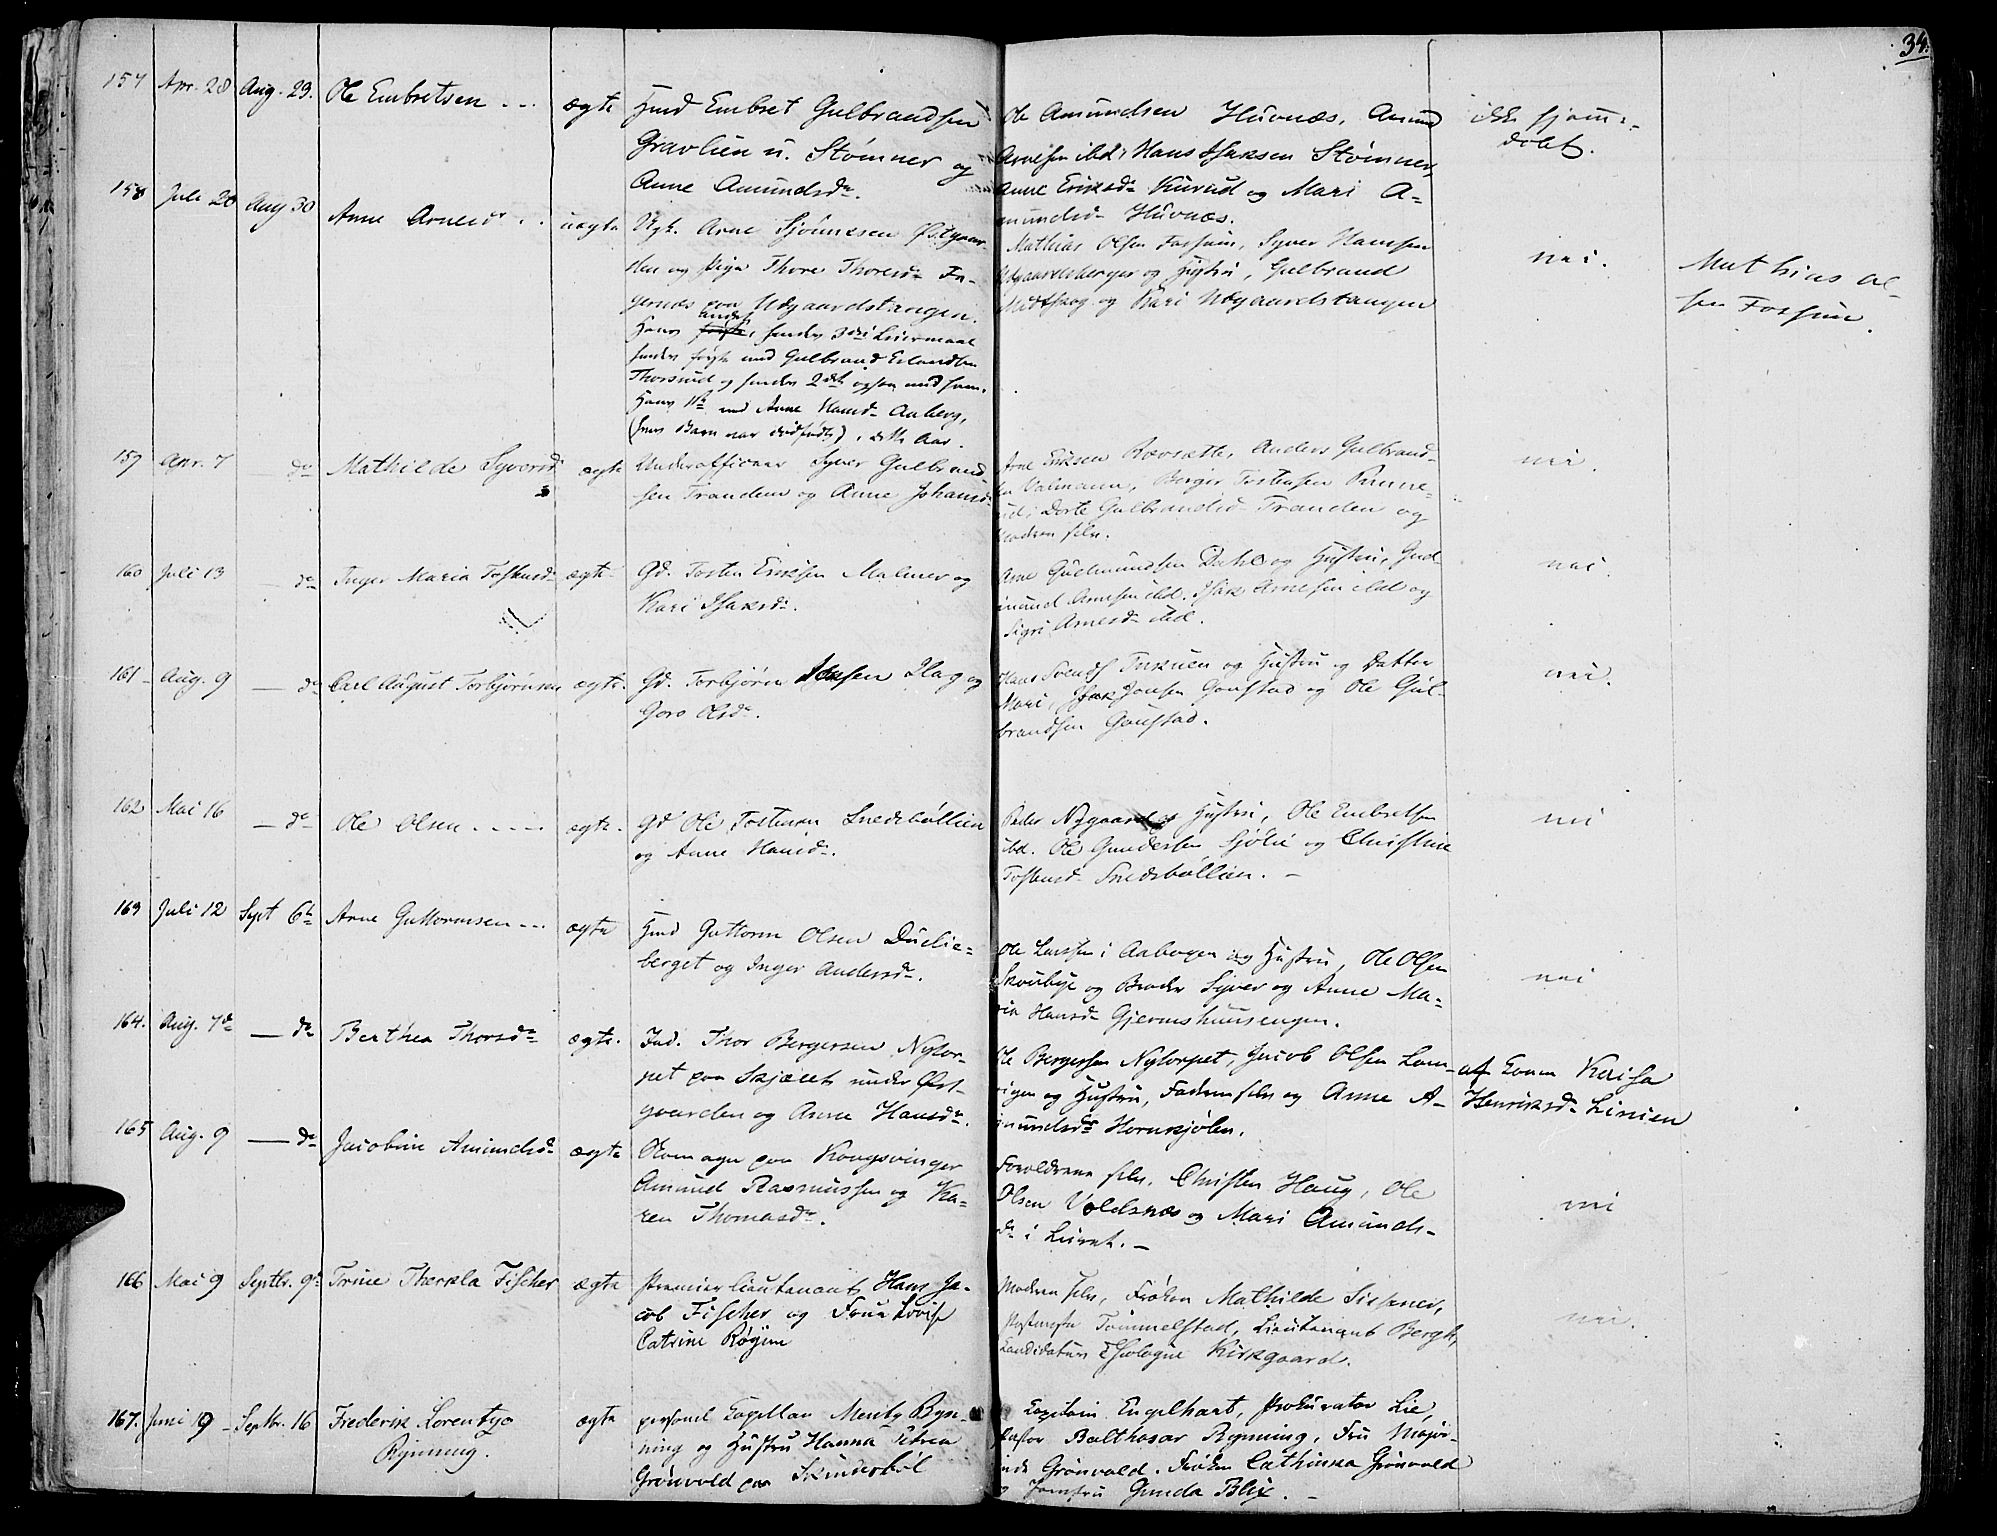 34.
157 Apr. 28 Aug. 29. Ole Embretsen ægte Hmd Embret Gulbrandsen
Gravlien u. Stømner og
Anne Amundsdr.
Ole Amundsen Huvnæs, Amund
Arnesen ibd, Hans Isaksen Stømner,
Anne Eriksdr Kurud og Mari A-
mundsdr Huvnæs.
ikke hjemme-
døbt.
158 Juli 20 Aug 30 Anne Arnesdr uægte Ugk. Arne Sjønnesen Østgaar-
den og Pige Thore Thoresdr Fa-
gernæs paa Udgaardstangen.
Hans andet, hendes 3die Leiermaal
hendes første med Gulbrand Erlandsen
Thorsrud og hendes 2det ogsaa med ham.
Hans 1ste med Anne Hansdr Aaberg,
(hvis Barn var dødfødt), dette Aar.
Mathias Olsen Fossum, Syver Hansen
og Hustru, Gulbrand
Midtskog og Kari Udgaardstangen
nei.
Mathias Ol-
sen Fossum.
159 Apr. 7 do Mathilde Syversdr ægte Underofficeer Syver Gulbrand-
sen Tranden og Anne Johansdr
Arne Eriksen Rævsætte, Anders Gulbrand-
sen Valmann, Birger Tostensen
Dorte Gulbrandsdr Tranden og
Moderen selv.
nei.
160 Juli 13 do Inger Maria Tostensdr ægte Gd. Tosten Eriksen Malmer og
Kari Isaksdr.
Arne Gudmundsen Dahl og Hustru, Gud-
mund Arnesen ibd. Isak Arnesen ibd og
Sigri Arnesdr ibd.
nei.
161 Aug. 9 do Carl August Torbjørnsen ægte. Gd. Torbjørn Isaksen Hag og
Goro Olsdr.
Hans Svends og Hustru og Datter
Mari, Isak Jonsen Gaustad og Ole Gul-
brandsen Gaustad.
nei.
162 Mai 16 do Ole Olsen ægte. Gd Ole Tostensen Snedsbøllien
og Anne Hansdr.
Peder Nygaard og Hustru, Ole Embretsen
ibd. Ole Gundersen Sjølie og Christine
Tostensdr Snedsbøllien. -
nei
163 Juli 12 Sept 6te Arne Guttormsen ægte Hmd Guttorm Olsen Dulie-
berget og Inger Andersdr.
Ole Larsen i Aabogen og Hustru, Ole Olsen
Skovbye og Broder Syver og Anne Ma-
ria Hansdr Gjermshuusengen.
nei
164. Aug. 7de do Berthea Thorsdr ægte. Ind. Thor Bergersen Nytor-
pet paa Skjæret under Øst-
gaarden og Anne Hansdr.
Ole Bergersen Nytorpet, Jacob Olsen Lam-
vigen og Hustru, Faderen selv og Anne A-
mundsdr Hornkjølen.
af Konen Kaisa
Henriksdr Linien
165 Aug. 9 do Jacobine Amundsdr ægte Oom age paa Kongsvinger
Amund Rasmussen og Ka-
ren Thomasdr.
Forældrene selv, Christen Haug, Ole
Olsen Voldsnæs og Mari Amunds-
dr i Lieret. -
nei
166 Mai 9 Septbr. 9de Trine Thekla Fischer ægte Premierlieutenant Hans Ja-
cob Fischer og Frue Lovise
Catrine Røyem
Moderen selv, Frøken Mathilde Sissener,
Postmester Tommelstad, Lieutenant Bergh,
Candidatus Theologiæ Kirkgaard.
nei.
167. Juni 19 Septbr. 16 Frederik Lorentz
Rynning.
ægte personel Capellan Meritz Ryn-
ning og Hustru Hanna Petrea
Grønvold paa Skinderbøl
Capitain Engelhart, Prokurator Lie,
Pastor Balthasar Rynning, Fru Major-
inde Grønvold. Frøken Cathinka Grønvold
og Jomfru Gunda Blix. -